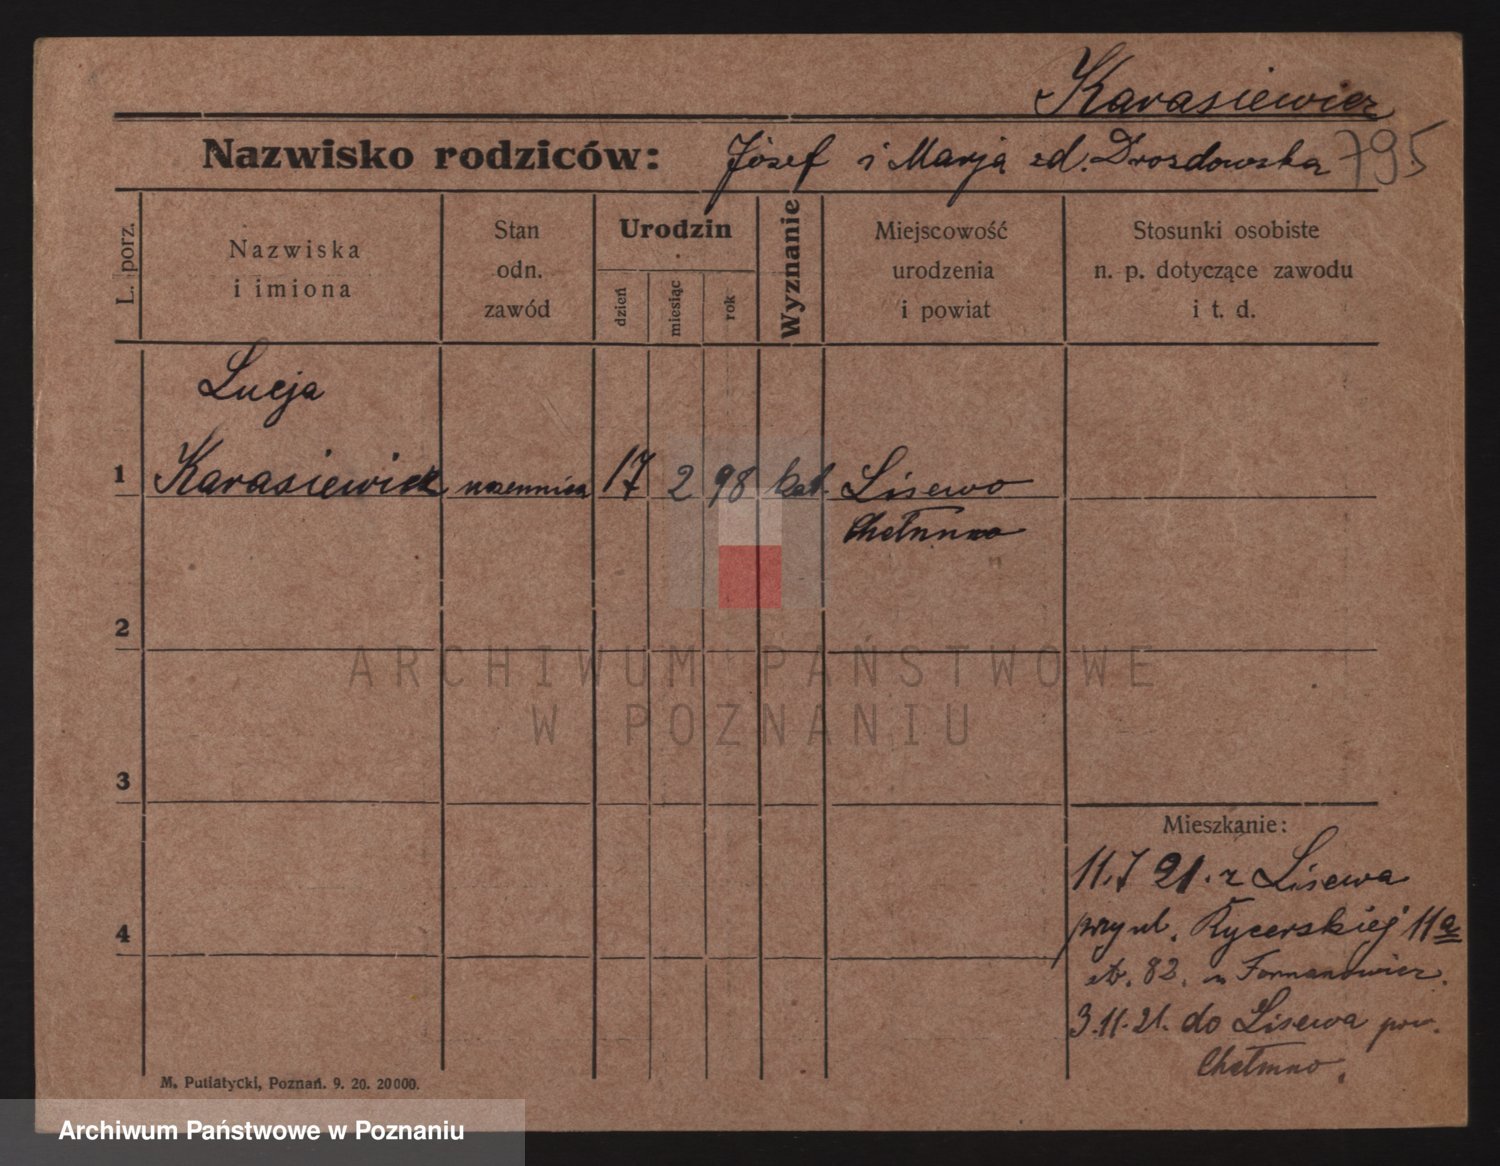 Karasiewicz
Nazwisko rodziców: Józef i Marja zd. Drozdowska 795
L. porz.
Nazwiska
i imiona
Stan
odn.
zawód
Urodzin
dzień
miesiąc
rok
Wyznanie
Miejscowość
urodzenia
i powiat
Stosunki osobiste
n. p. dotyczące zawodu
i t. d.
Lucja
1 Karasiewicz uczennica 17 2 98 kat. Lisewo
Chełmno
2
ARCHIWUM PAŃSTWOWE
W POZNANIU
3
Mieszkanie:
11.7 21. z Lisewa
przy ul. Rycerskiej 11a
82. Formanowicz.
4
3.11.21. do Lisewa pow.
Chełmno.
M. Putiatycki, Poznań. 9. 20. 20000.
Archiwum Państwowe w Poznaniu